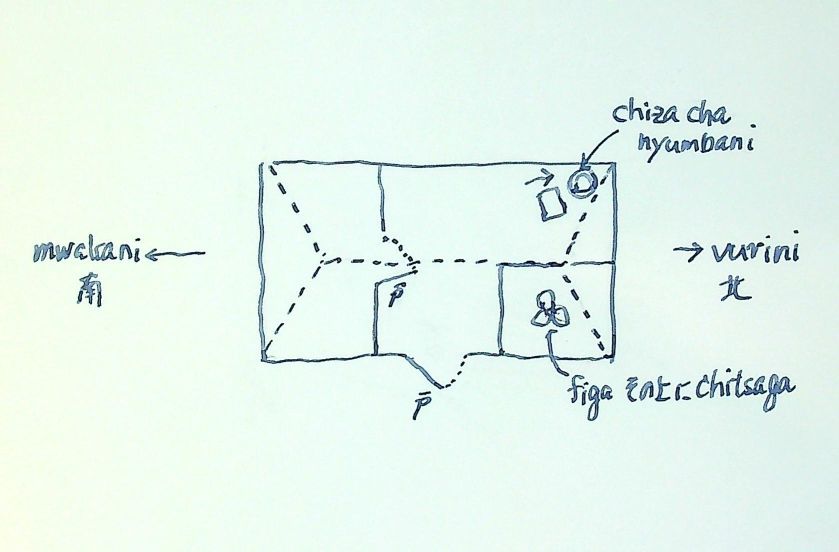 chiza cha
nyumbani
mwakani
南
vurini
北
戸
戸
figa その上に chitsaga